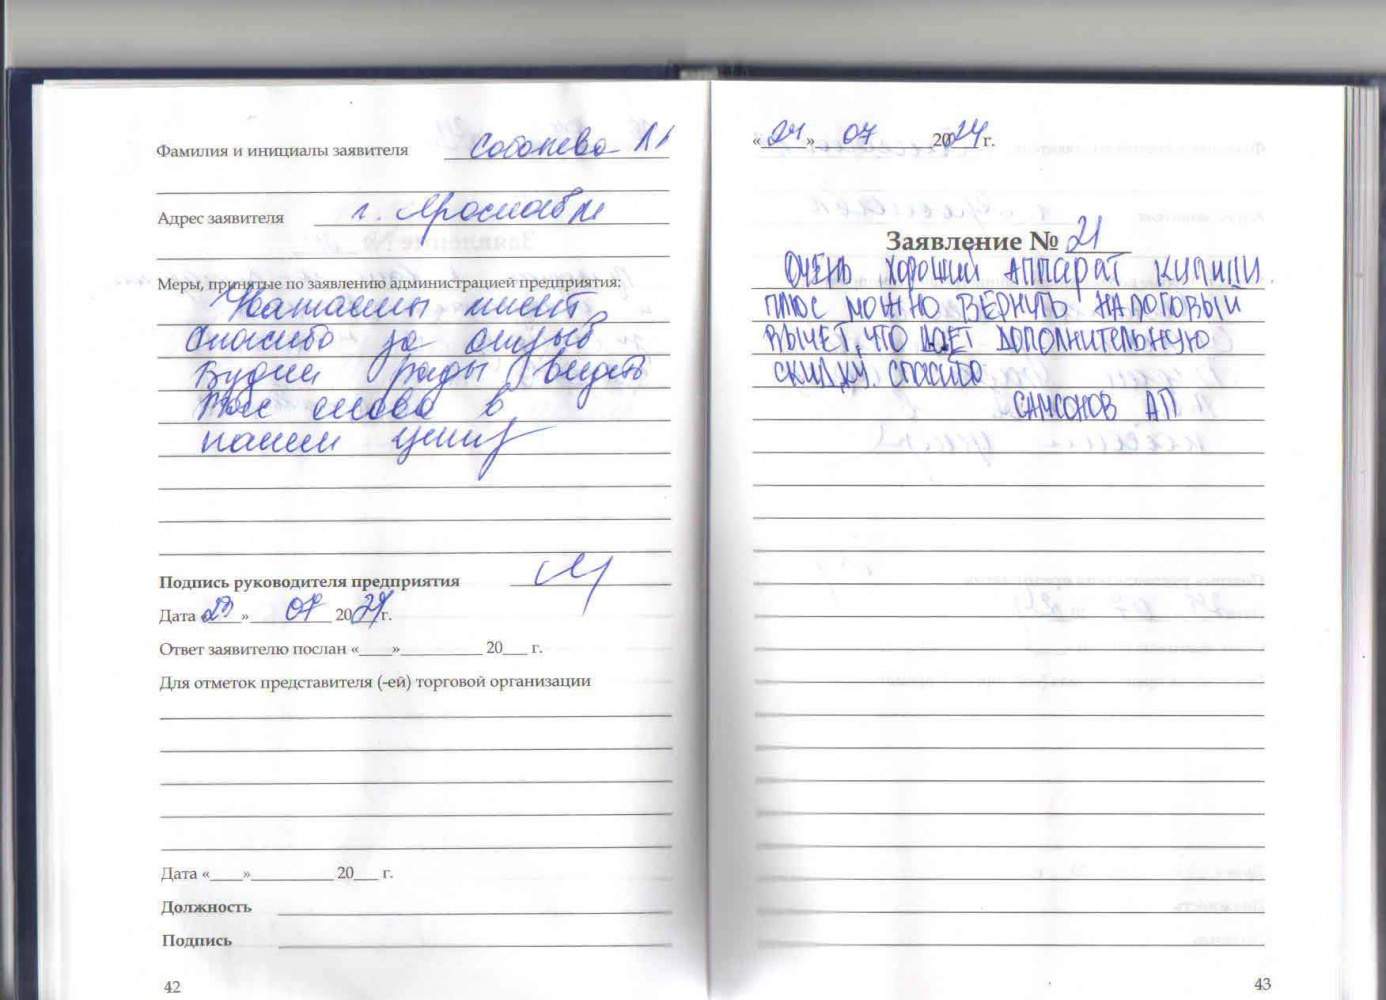 Фамилия и инициалы заявителя
Адрес заявителя г. Ярославль
Меры, принятые по заявлению администрацией предприятия:
Спасибо за отзыв
Будем рады видеть
Вас снова в
нашем
Подпись руководителя предприятия
Дата «23» 07 2024г.
Ответ заявителю послан «____»__________ 20___ г.
Для отметок представителя (-ей) торговой организации
Дата «____»__________ 20___ г.
Должность
Подпись
42
«24» 07 2024 г.
Заявление № 21
ОЧЕНЬ ХОРОШИЙ АППАРАТ КУПИЛИ.
ПЛЮС МОЖНО ВЕРНУТЬ НАЛОГОВЫЙ
ВЫЧЕТ, ЧТО ДАЕТ ДОПОЛНИТЕЛЬНУЮ
СКИДКУ. СПАСИБО
САМСОНОВ АП
43